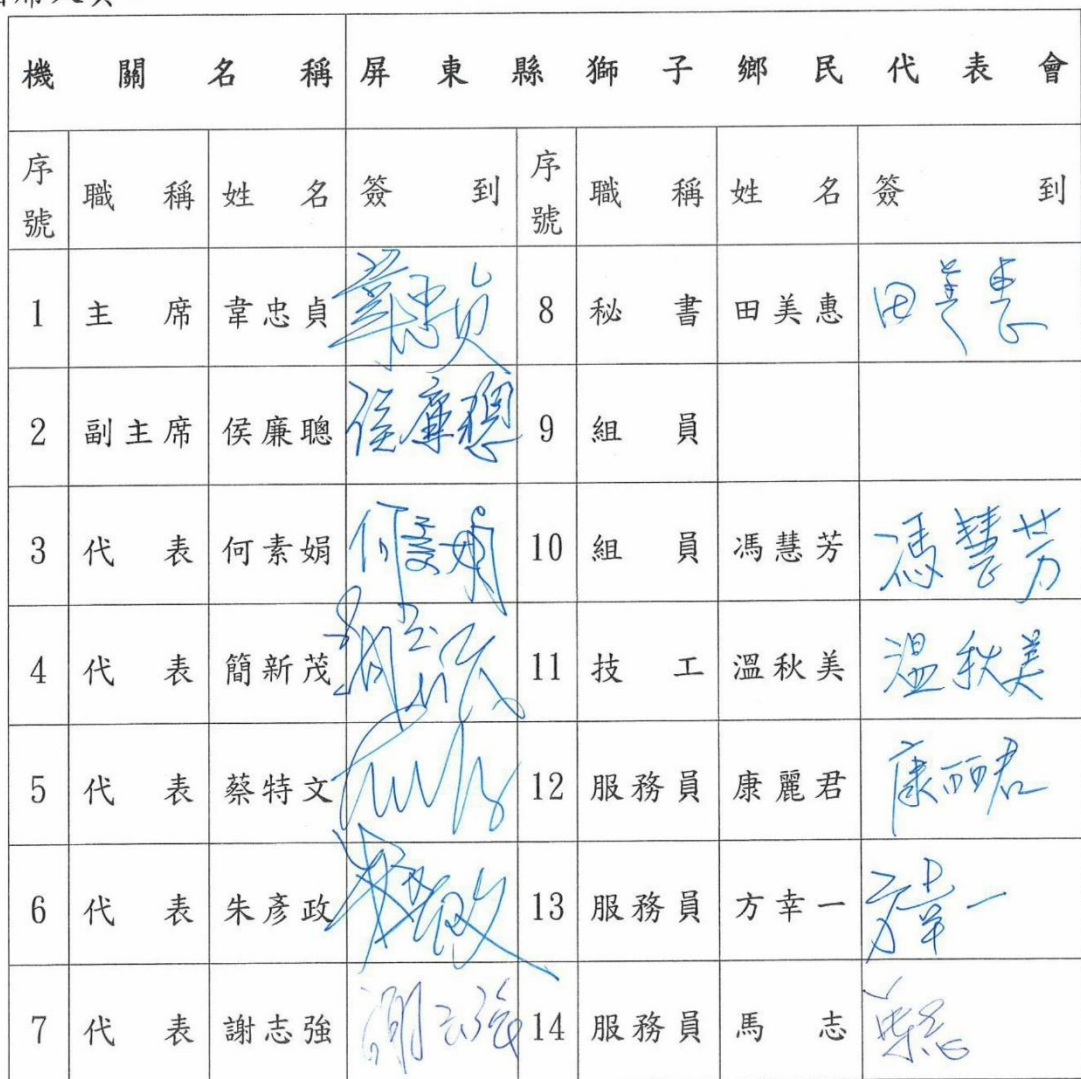 機關名稱 屏東縣獅子鄉民代表會
序號 職稱 姓名 簽到 序號 職稱 姓名 簽到
1 主席 韋忠貞 韋忠貞 8 秘書 田美惠 田美惠
2 副主席 侯廉聰 侯廉聰 9 組員
3 代表 何素娟 何素娟 10 組員 馮慧芳 馮慧芳
4 代表 簡新茂 11 技工 溫秋美 溫秋美
5 代表 蔡特文 12 服務員 康麗君 康丽君
6 代表 朱彥政 13 服務員 方幸一 方幸一
7 代表 謝志強 謝志強 14 服務員 馬志